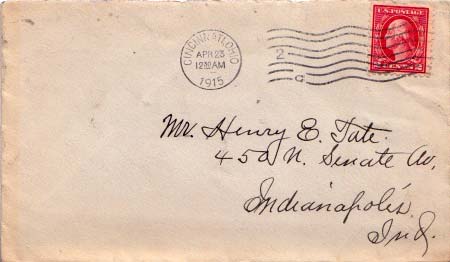 CINCINNATI, OHIO
APR 23
12 30 AM
1915
2
C
U.S. POSTAGE
2 CENTS 2
Mr. Henry E. Tate.
450 N. Senate Av,
Indianapolis,
Ind.